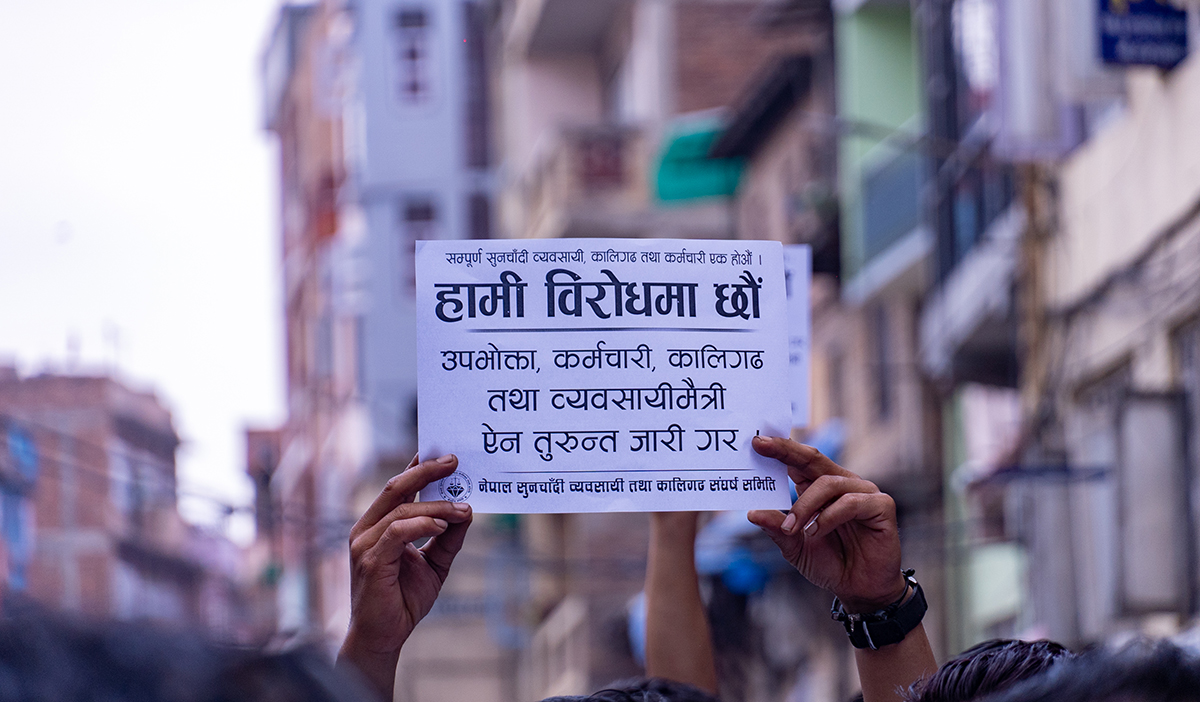 सम्पूर्ण सुनचाँदी व्यवसायी, कालिगढ तथा कर्मचारी एक होऔं ।
हामी विरोधमा छौं
उपभोक्ता, कर्मचारी, कालिगढ
तथा व्यवसायीमैत्री
ऐन तुरुन्त जारी गर ।
नेपाल सुनचाँदी व्यवसायी तथा कालिगढ संघर्ष समिति